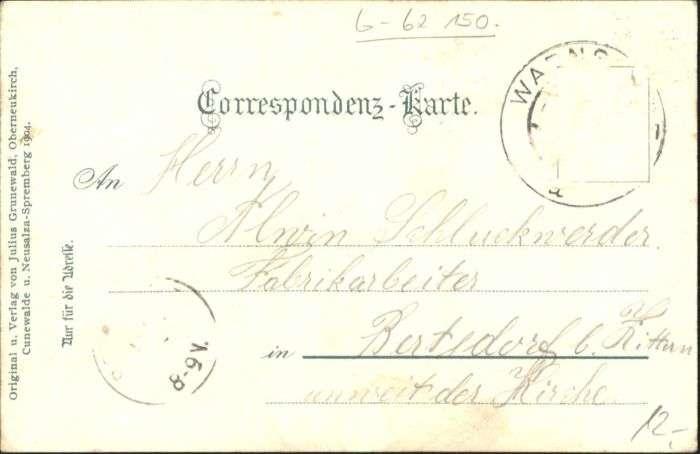 6-62 150.
Correspondenz-Karte.
An Herrn
Alwin Schluckwerder.
Fabrikarbeiter
in Bertsdorf b. Zittau
unweit der Kirche.
Nur für die Adresse.
Original u. Verlag von Julius Grunewald, Oberneukirch,
Cunewalde u. Neusalza-Spremberg 1904.
8-9V.
12,-